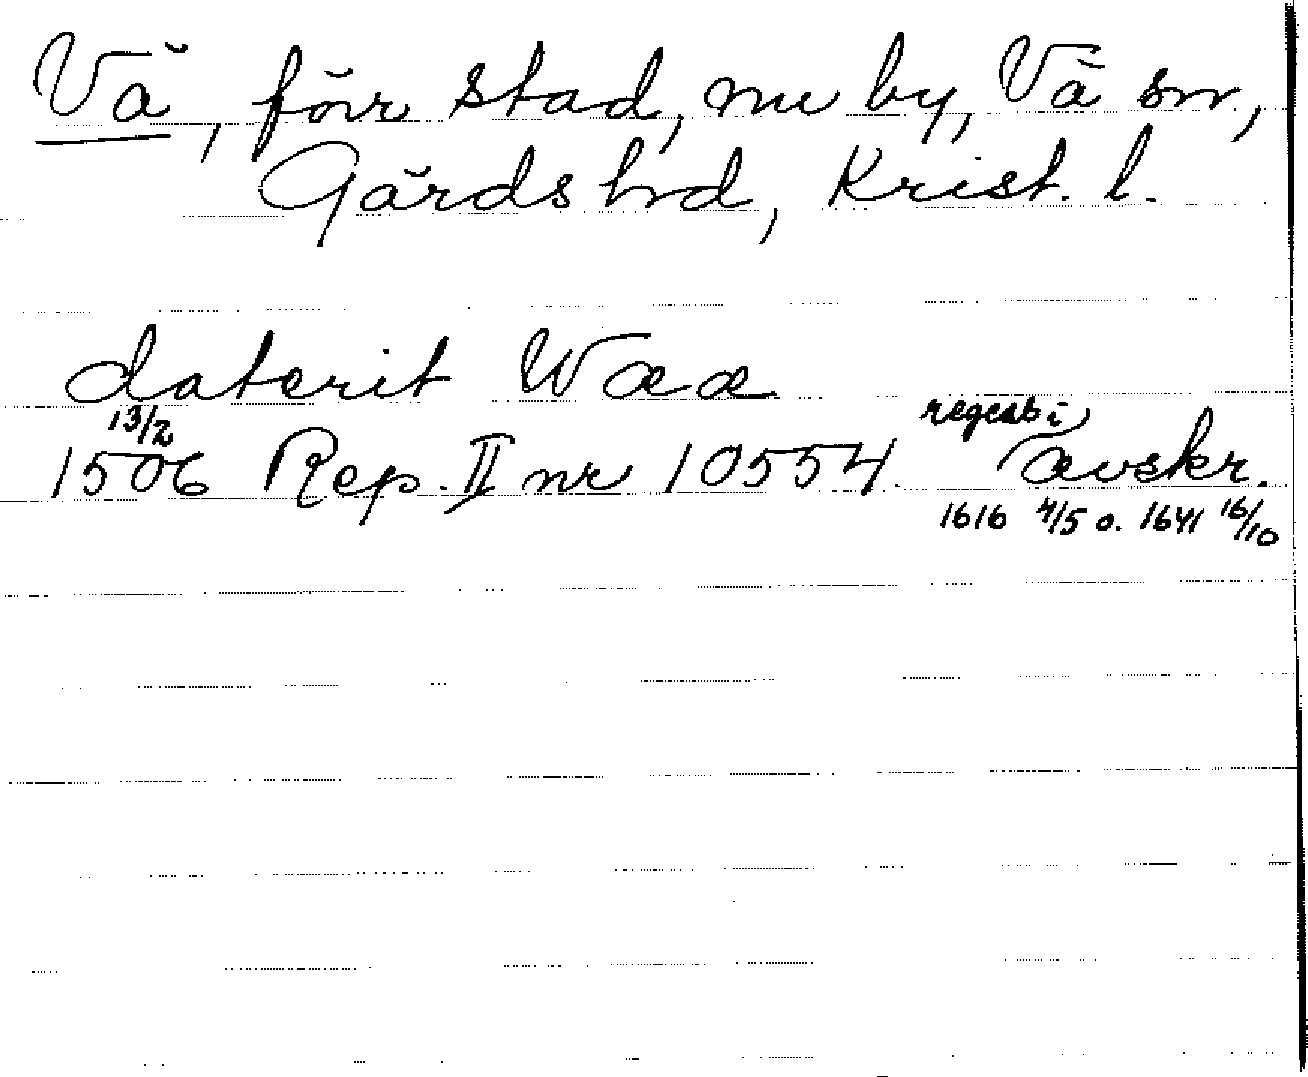 Vä, förr stad, nu by, Vä sn,
Gärds hd, Krist. l.
daterit Wææ
13/2 regest i
1506 Rep. II nr 10554 avskr.
1616 4/5 o. 1641 16/10